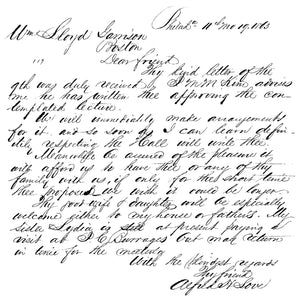 Philada 11th Mo 19, 1863
Wm Lloyd Garrison
Boston
Dear friend
Thy kind letter of the
9th was duly received & J M M Kim advises
me he has written thee approving the con-
templated lecture.
We will immediately make arrangements
for it, and so soon as I can learn defin-
itely respecting the Hall will write thee.
Meanwhile be assured of the pleasure it
will afford us to have thee or any of thy
family with us, if only for the short time
thee proposed. We wish it could be longer.
Thy good wife & daughter will be especially
welcome either to my house or father's. My
sister Lydia is at present paying a
visit at Burrages but may return
in time for the meeting
With the kindest regards
Thy friend
Alfred H Love